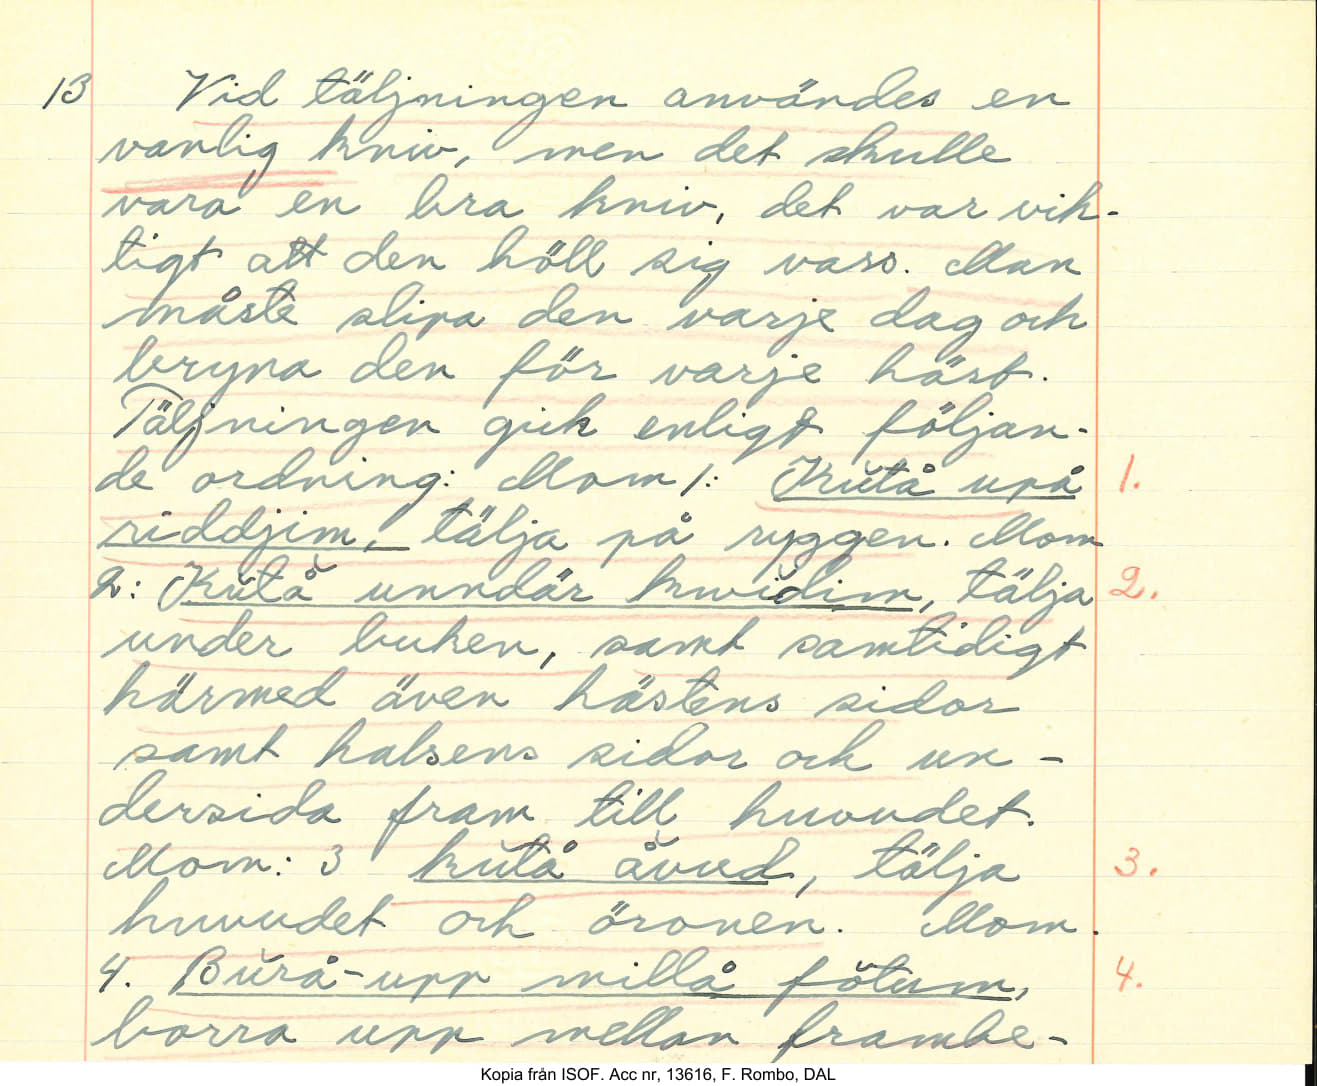 13 Vid täljningen användes en
vanlig kniv, men det skulle
vara en bra kniv, det var vik-
tigt att den höll sig vass. Man
måste slipa den varje dag och
bryna den för varje häst.
Täljningen gick enligt följan-
de ordning: Mom 1: Kŭtå upå 1.
riddjim, tälja på ryggen. Mom
2: Kŭtå unndär kwĭdim, tälja 2.
under buken, samt samtidigt
härmed även hästens sidor
samt halsens sidor och un-
dersida fram till huvudet.
Mom: 3 kŭtå å̆vud, tälja 3.
huvudet och öronen. Mom.
4. Bŭrå-upp millå fŏtum, 4.
borra upp mellan frambe-
Kopia från ISOF. Acc nr, 13616, F. Rombo, DAL